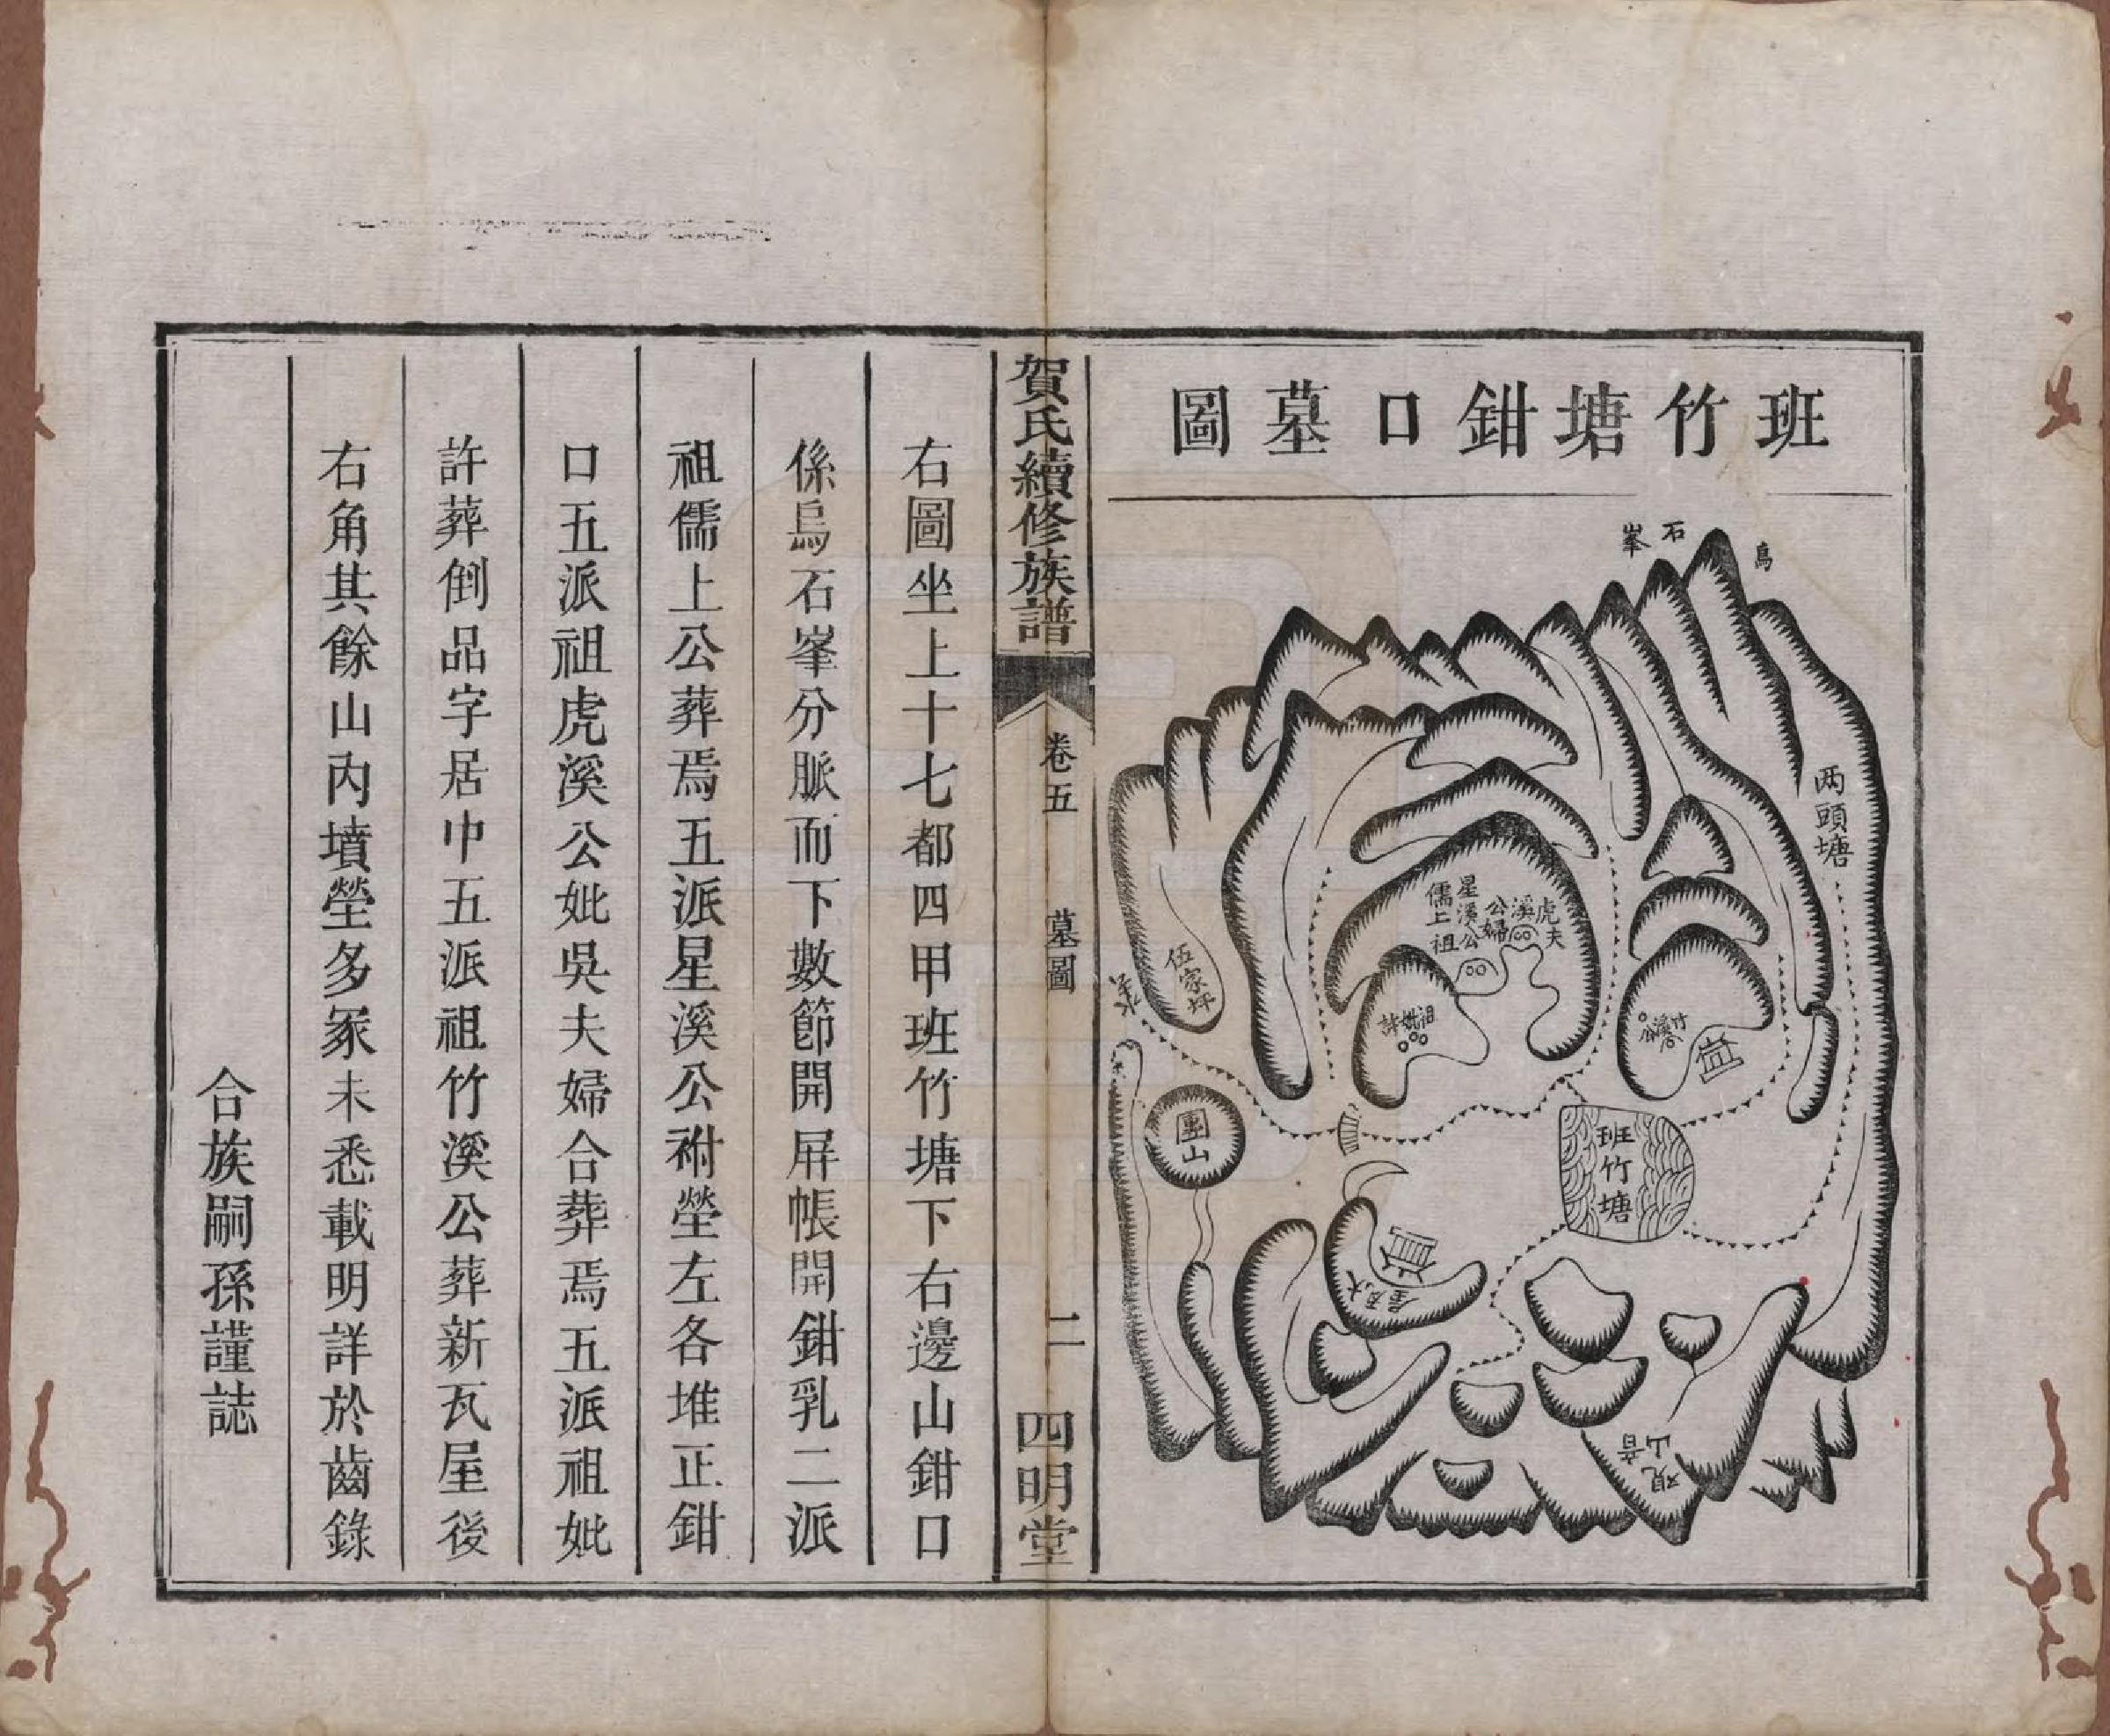 班竹塘鉗口墓圖
烏石峯
两頭塘
虎溪夫婦公
星溪公
儒上祖
祖妣許
竹溪公
伍家坪
團山
班竹塘
觀音山
賀氏續修族譜
卷五
墓圖
二
四明堂
右圖坐上十七都四甲班竹塘下右邊山鉗口
係烏石峯分脈而下數節開屏帳開鉗乳二派
祖儒上公葬焉五派星溪公祔塋左各堆正鉗
口五派祖虎溪公妣吳夫婦合葬焉五派祖妣
許葬倒品字居中五派祖竹溪公葬新瓦屋後
右角其餘山內墳塋多冢未悉載明詳於齒錄
合族嗣孫謹誌